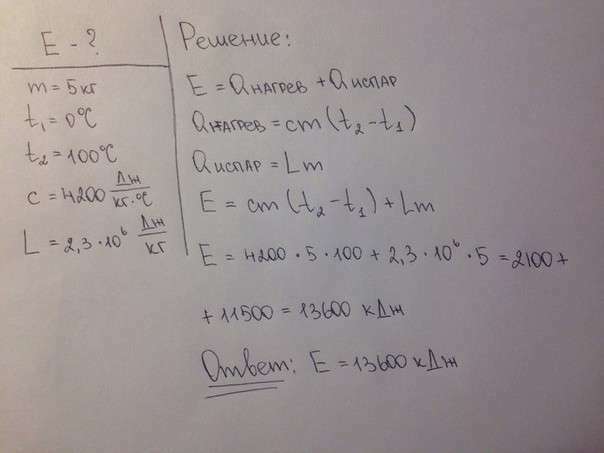 E - ?
m = 5 кг
t₁ = 0°C
t₂ = 100°C
c = 4200 Дж/кг·°C
L = 2,3 · 10⁶ Дж/кг
Решение:
E = Qнагрев + Qиспар
Qнагрев = cm (t₂ - t₁)
Qиспар = Lm
E = cm (t₂ - t₁) + Lm
E = 4200 · 5 · 100 + 2,3 · 10⁶ · 5 = 2100 +
+ 11500 = 13600 кДж
Ответ: E = 13600 кДж